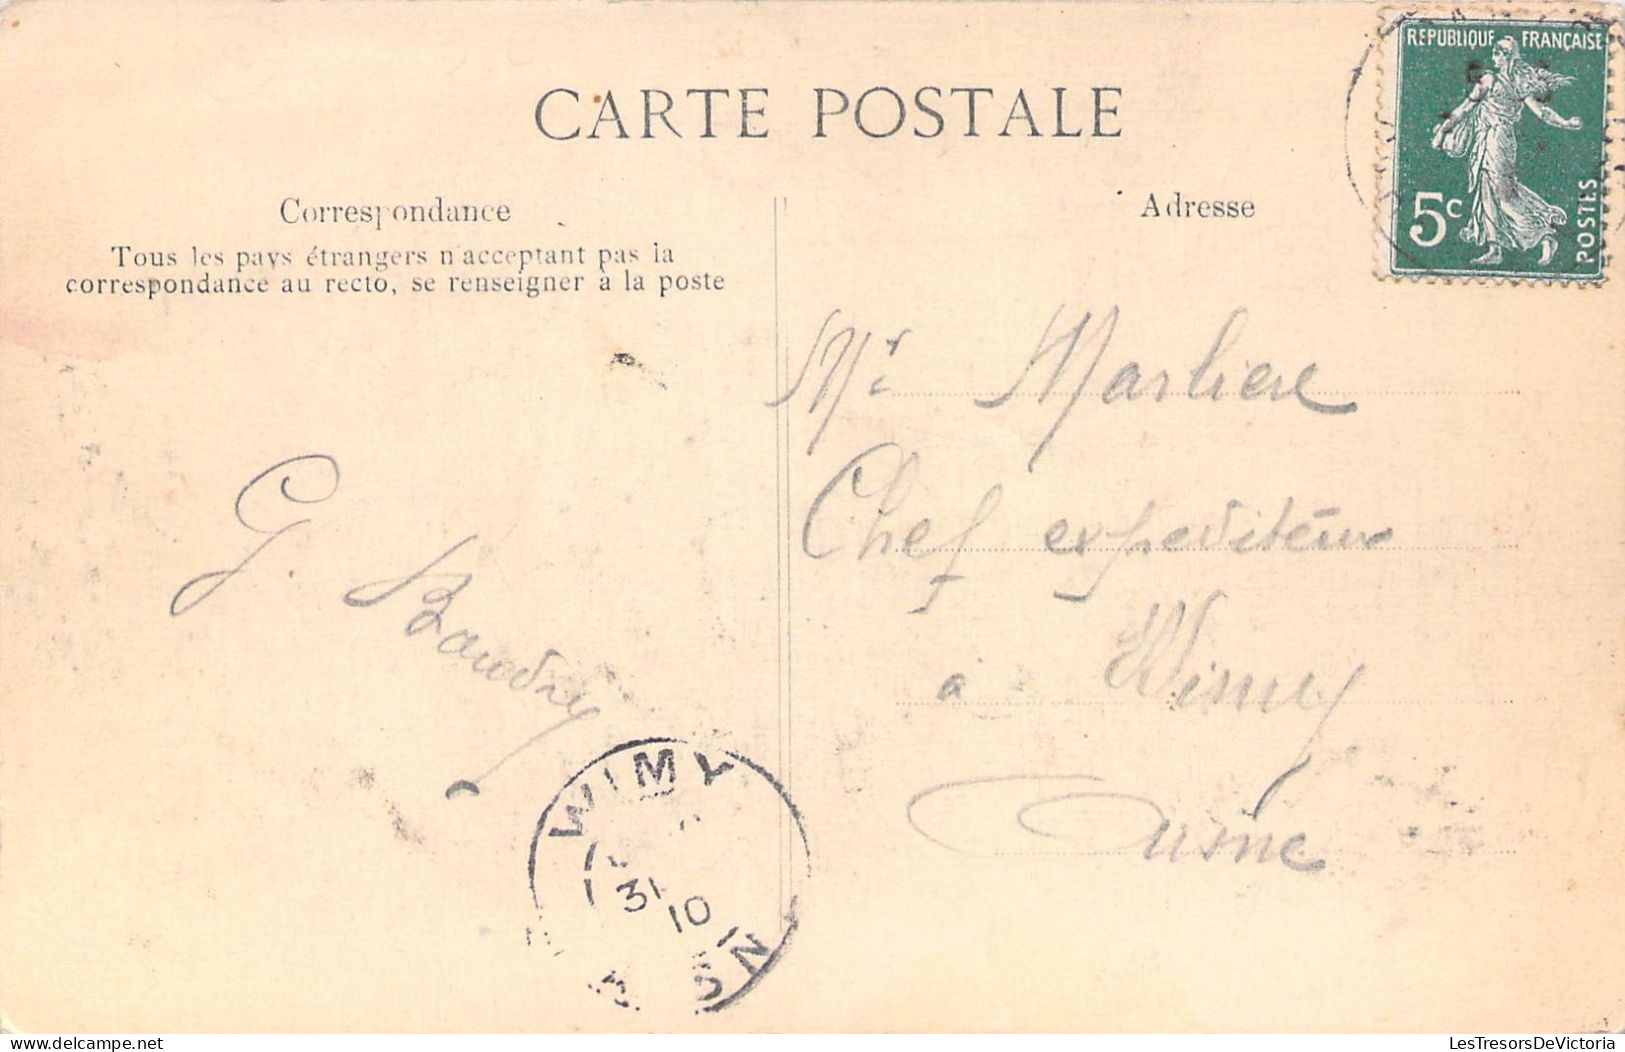 CARTE POSTALE
REPUBLIQUE FRANÇAISE
5c
POSTES
Correspondance
Adresse
Tous les pays étrangers n'acceptant pas la
correspondance au recto, se renseigner à la poste
Mr Marliere
Chef expediteur
à Wimy
Aisne
G. Baudry
WIMY
31
10
AISNE
delcampe.net
LesTresorsDeVictoria